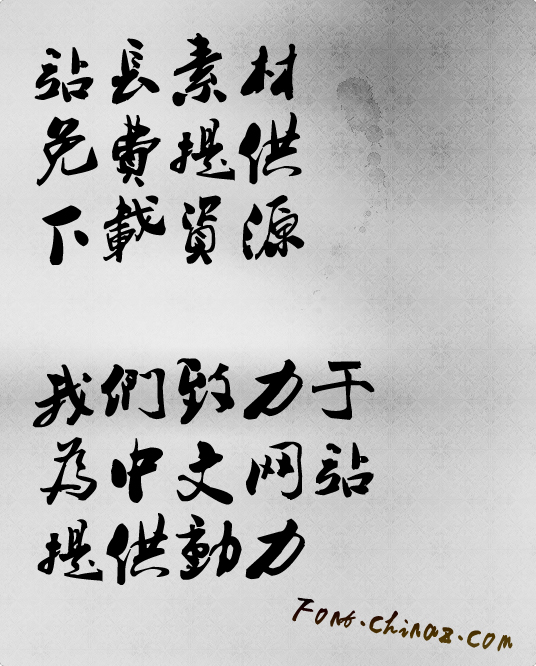 站長素材
免費提供
下載資源
我們致力于
為中文网站
提供動力
Font.chinaz.com